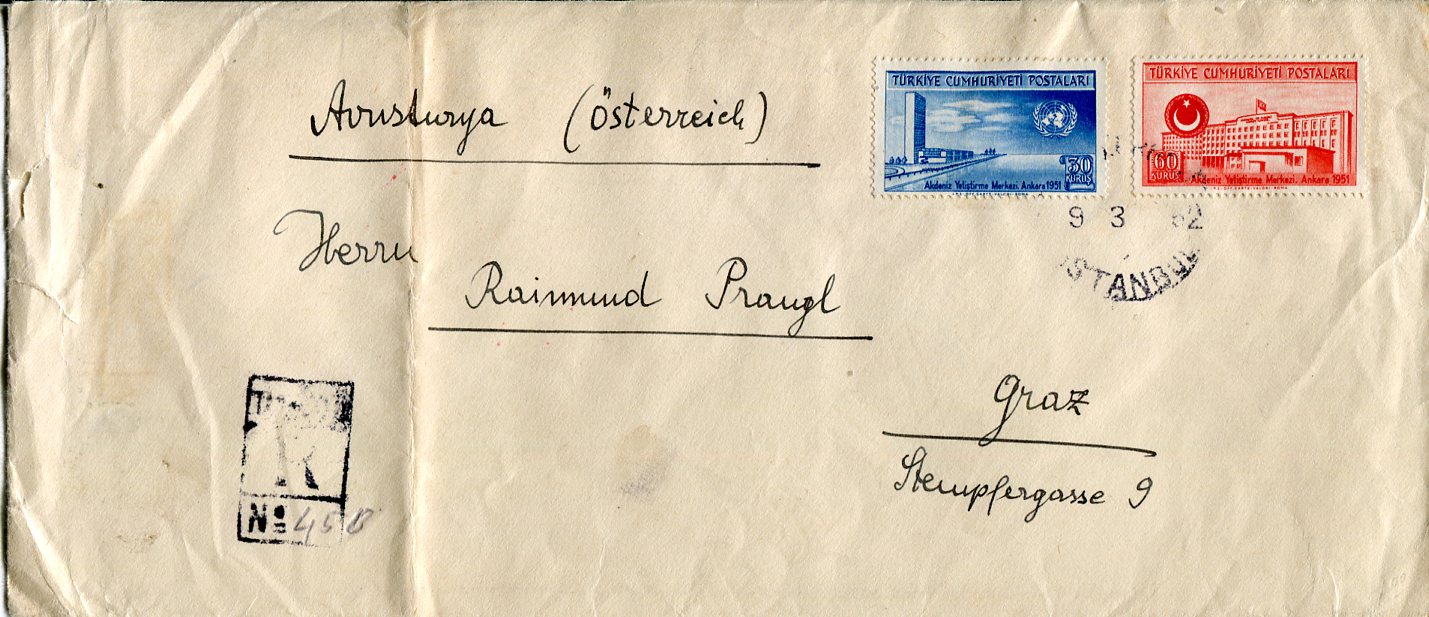 TÜRKİYE CUMHURİYETİ POSTALARI
30
KURUŞ
Akdeniz Yetiştirme Merkezi. Ankara 1951
TÜRKİYE CUMHURİYETİ POSTALARI
60
KURUŞ
Akdeniz Yetiştirme Merkezi. Ankara 1951
9 3 52
İSTANBUL
Avusturya (Österreich)
Herrn
Raimund Prangl
Graz
Stempfergasse 9
R
Nº 458